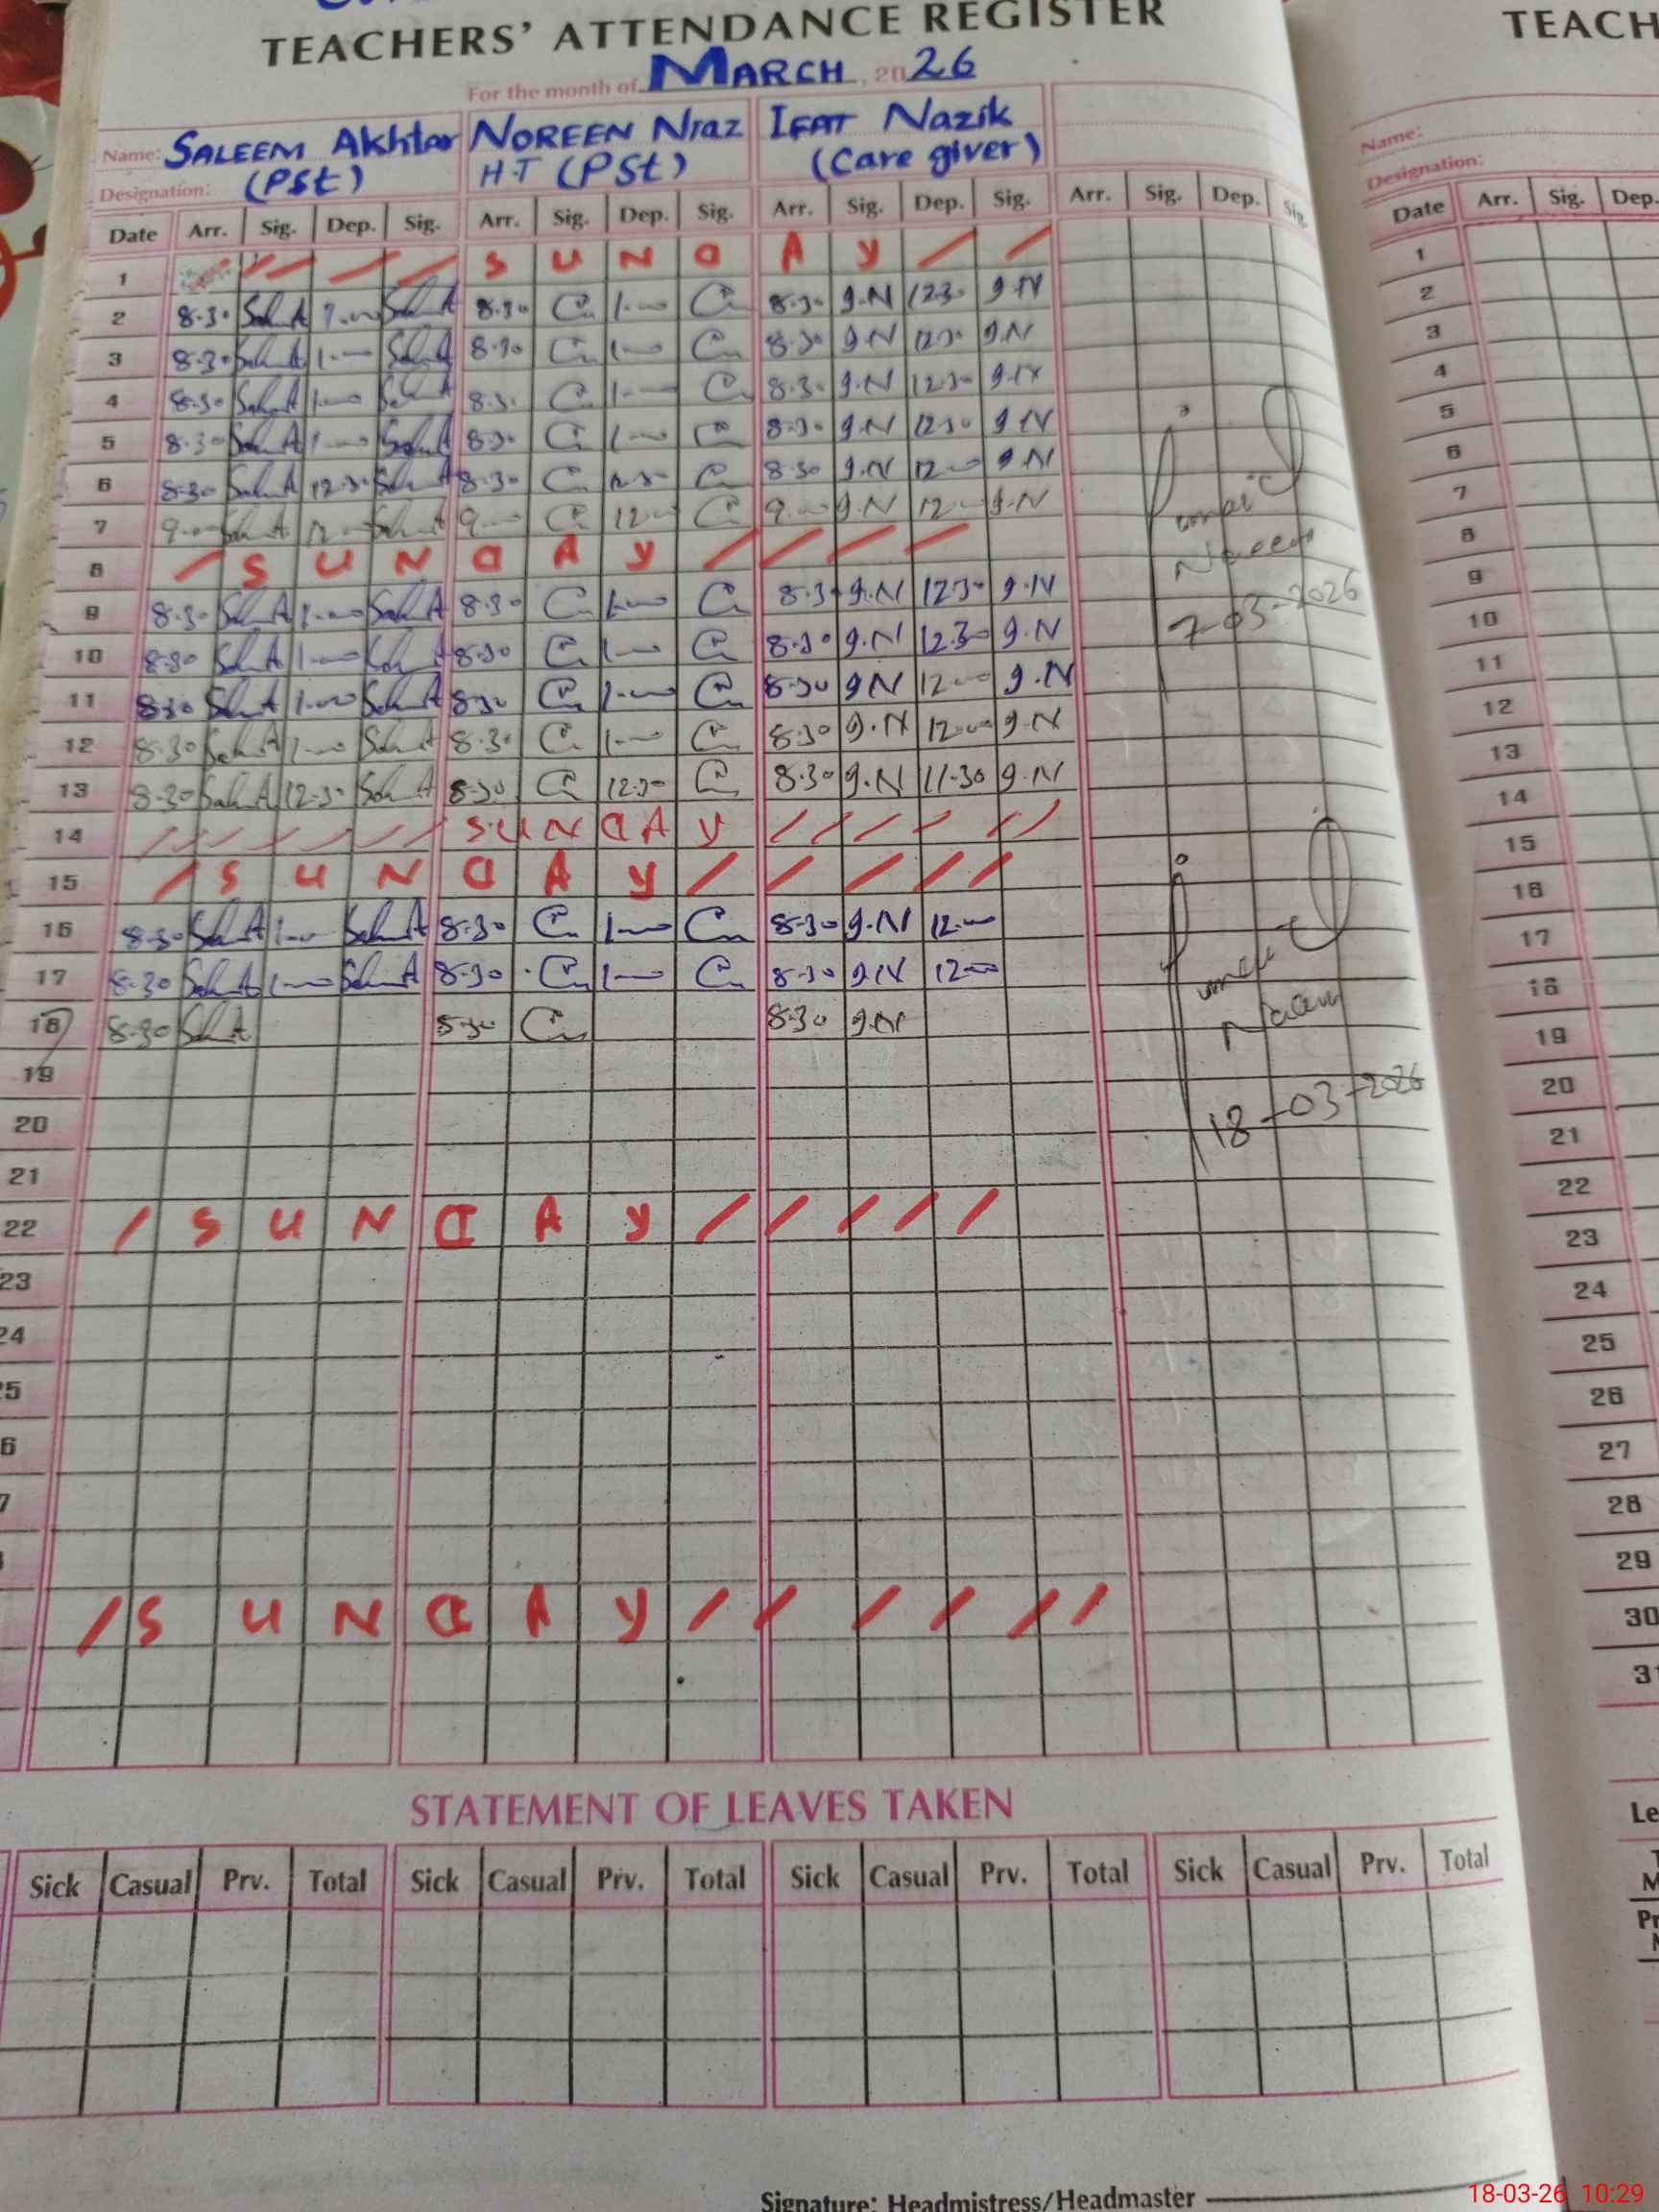 TEACHERS' ATTENDANCE REGISTER
TEACH
For the month of MARCH, 2026
Name: SALEEM Akhtar NOREEN Niaz IFAT Nazik
Name:
Designation: (PSt) H.T (PSt) (Care giver)
Designation:
Date Arr. Sig. Dep. Sig. Arr. Sig. Dep. Sig. Arr. Sig. Dep. Sig. Arr. Sig. Dep. Sig.
Date Arr. Sig. Dep.
1 S U N D A Y
2 8.30 1.00 8.30 1.00 8.30 9.N 12.30 9.N
3 8.30 1.00 8.30 1.00 8.30 9.N 12.30 9.N
4 8.30 1.00 8.30 1.00 8.30 9.N 12.30 9.N
5 8.30 1.00 8.30 1.00 8.30 9.N 12.30 9.N
6 8.30 12.30 8.30 12.30 8.30 9.N 12.00 9.N
7 9.00 12.00 9.00 12.00 9.00 9.N 12.00 9.N
8 S U N D A Y
9 8.30 1.00 8.30 1.00 8.30 9.N 12.30 9.N
10 8.30 1.00 8.30 1.00 8.30 9.N 12.30 9.N
11 8.30 1.00 8.30 1.00 8.30 9.N 12.00 9.N
12 8.30 1.00 8.30 1.00 8.30 9.N 12.00 9.N
13 8.30 12.30 8.30 12.30 8.30 9.N 11.30 9.N
14 S U N D A Y
15 S U N D A Y
16 8.30 1.00 8.30 1.00 8.30 9.N 12.00
17 8.30 1.00 8.30 1.00 8.30 9.N 12.00
18 8.30 8.30 8.30 9.N
19
20
21
22 S U N D A Y
23
24
5
6
7
S U N D A Y
Naeem
7-03-2026
Naeem
18-03-2026
1
2
3
4
5
6
7
8
9
10
11
12
13
14
15
16
17
18
19
20
21
22
23
24
25
26
27
28
29
30
31
STATEMENT OF LEAVES TAKEN
Sick Casual Prv. Total Sick Casual Prv. Total Sick Casual Prv. Total Sick Casual Prv. Total
Le
Signature: Headmistress/Headmaster
18-03-26 10:29